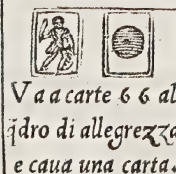 Va a carte 66 al
q̃dro di allegrezza
e caua una carta.